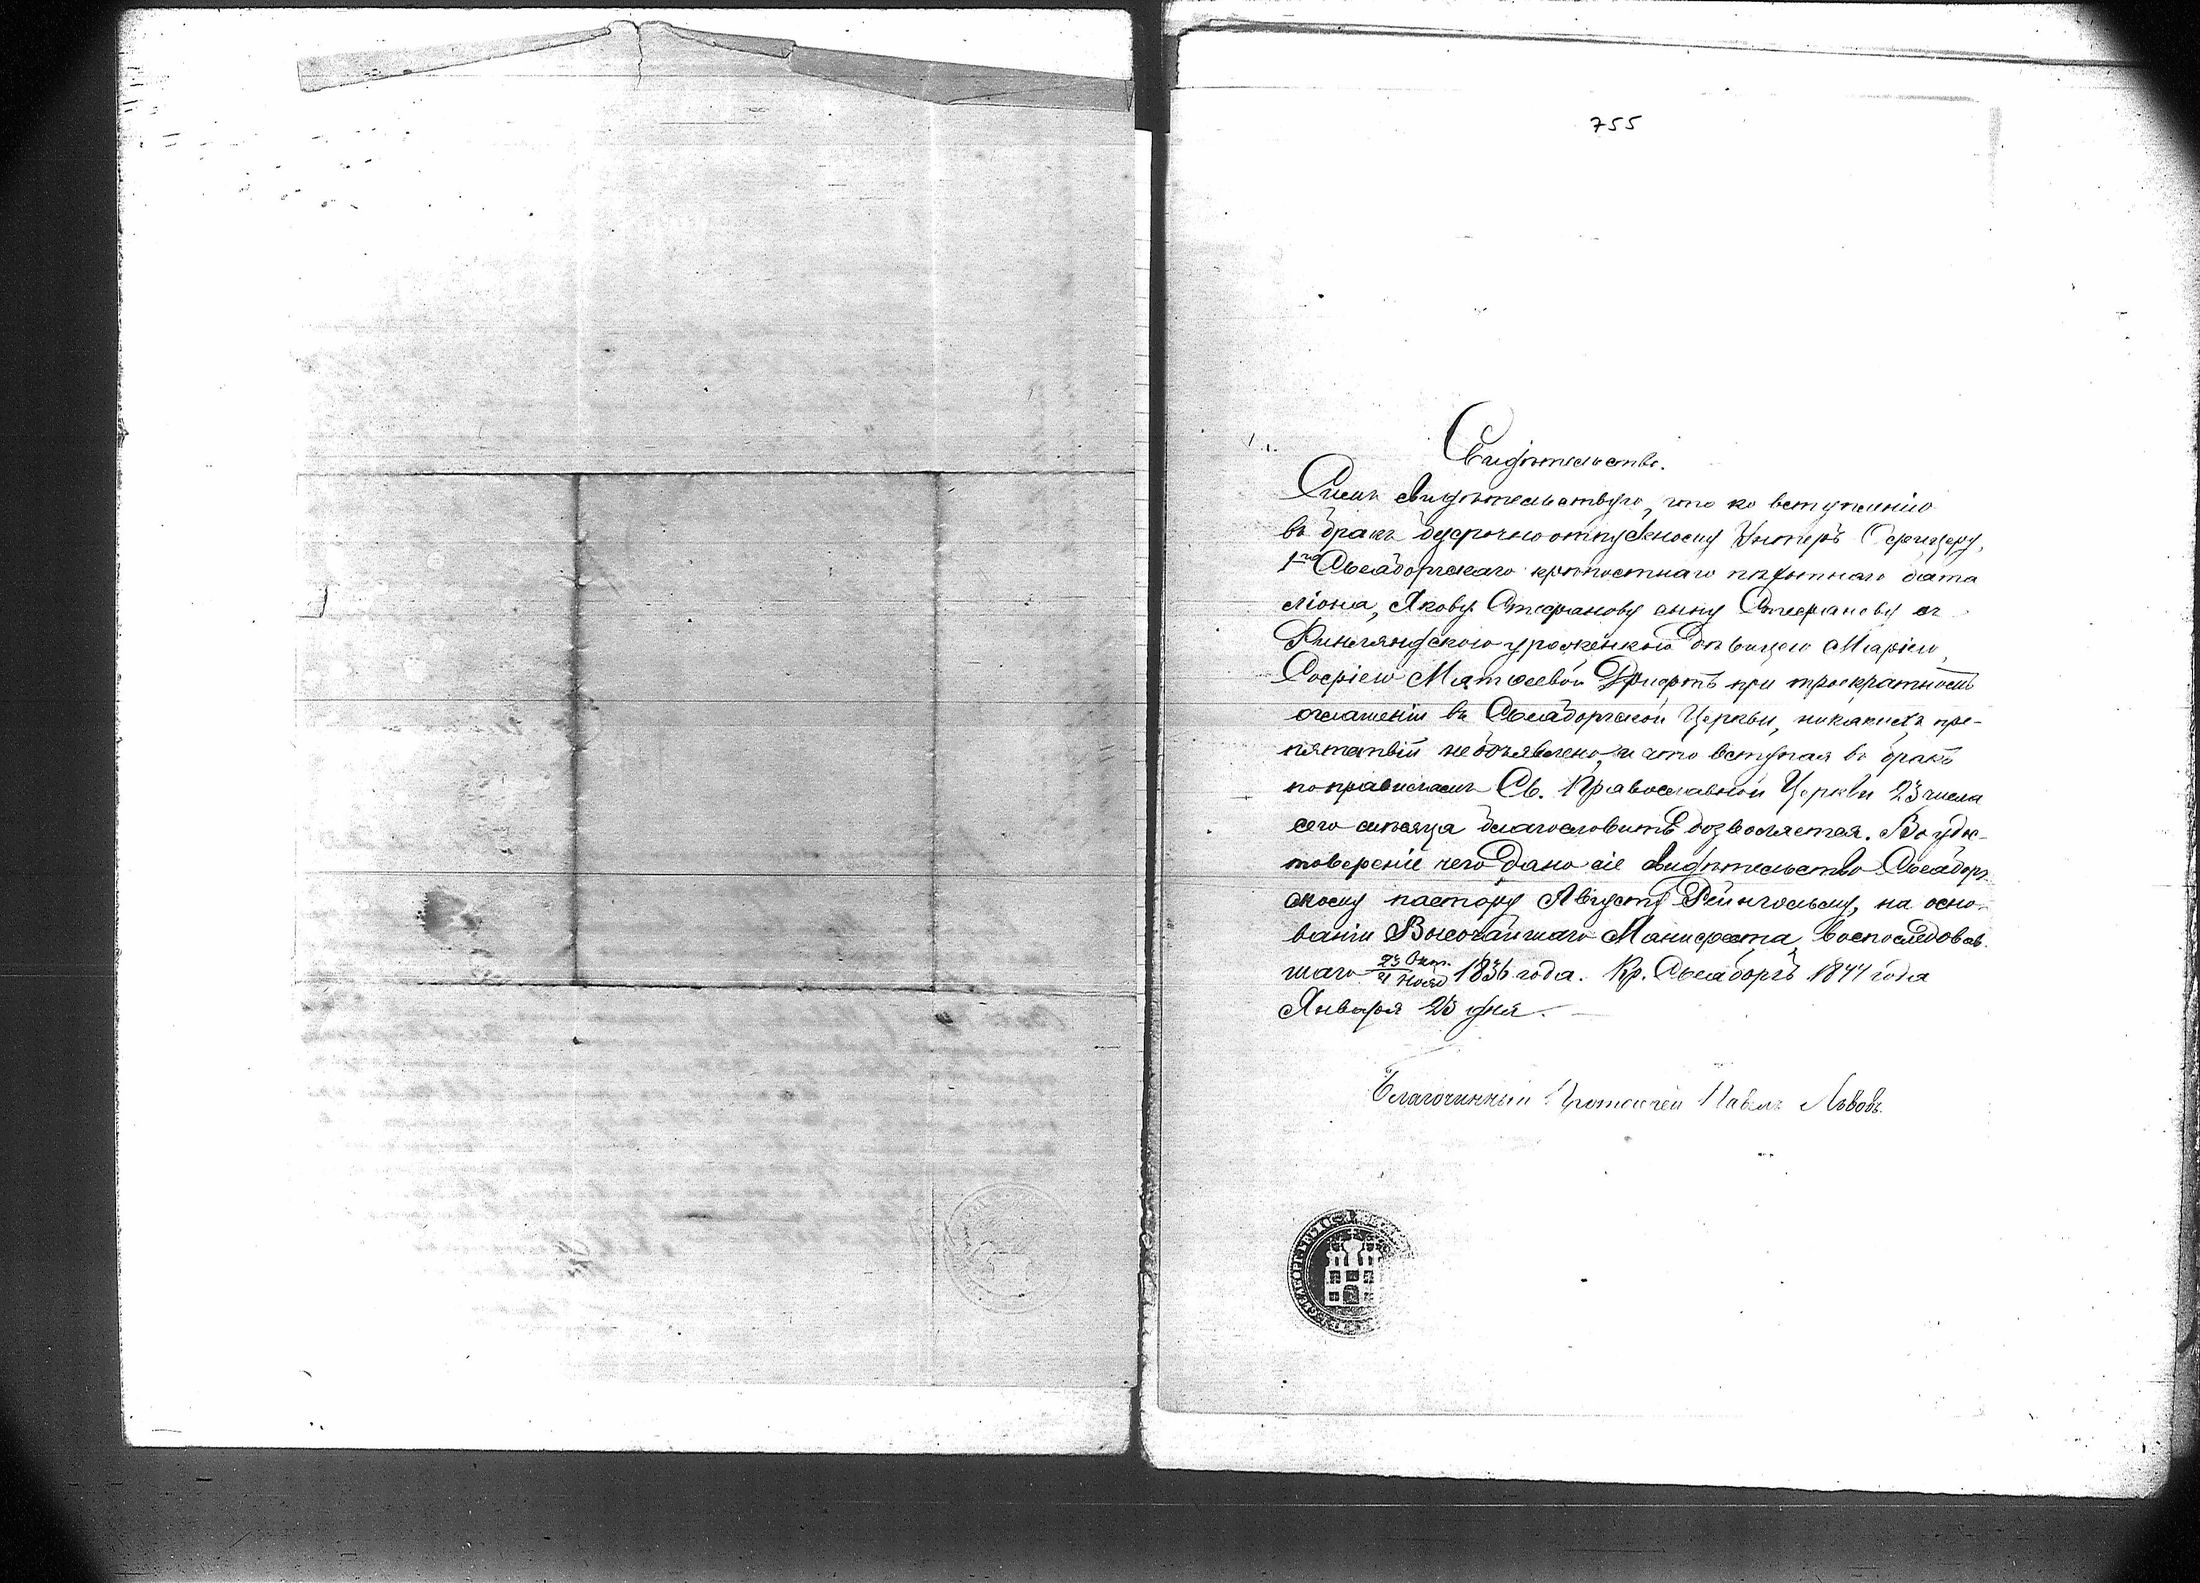 755
Свидѣтельство.
Симъ свидѣтельствую, что ко вступленію
въ бракъ безсрочноотпускному Унтеръ Офицеру,
1го Свеаборгскаго крѣпостнаго пѣхотнаго бата
ліона, Якову Стефанову сыну Стефанову съ
Финляндскою уроженкою дѣвицею Маріею
Софіею Матвеевой при троекратномъ
оглашеніи въ Свеаборгской Церкви, никакихъ пре-
пятствій необъявлено, и что вступая въ бракъ
по правиламъ Св. Православной Церкви 23 числа
сего мѣсяца благословить дозволяется. Во удо-
товереніе чего дано сіе свидѣтельство Свеаборг
скому пастору Августу на осно-
ваніи Высочайшаго Манифеста, воспоследовав
шаго 23 Окт./4 Нояб 1836 года. Кр. Свеаборгъ 1877 года
Января 23 дня.
Благочинный Протоіерей Павелъ Львовъ